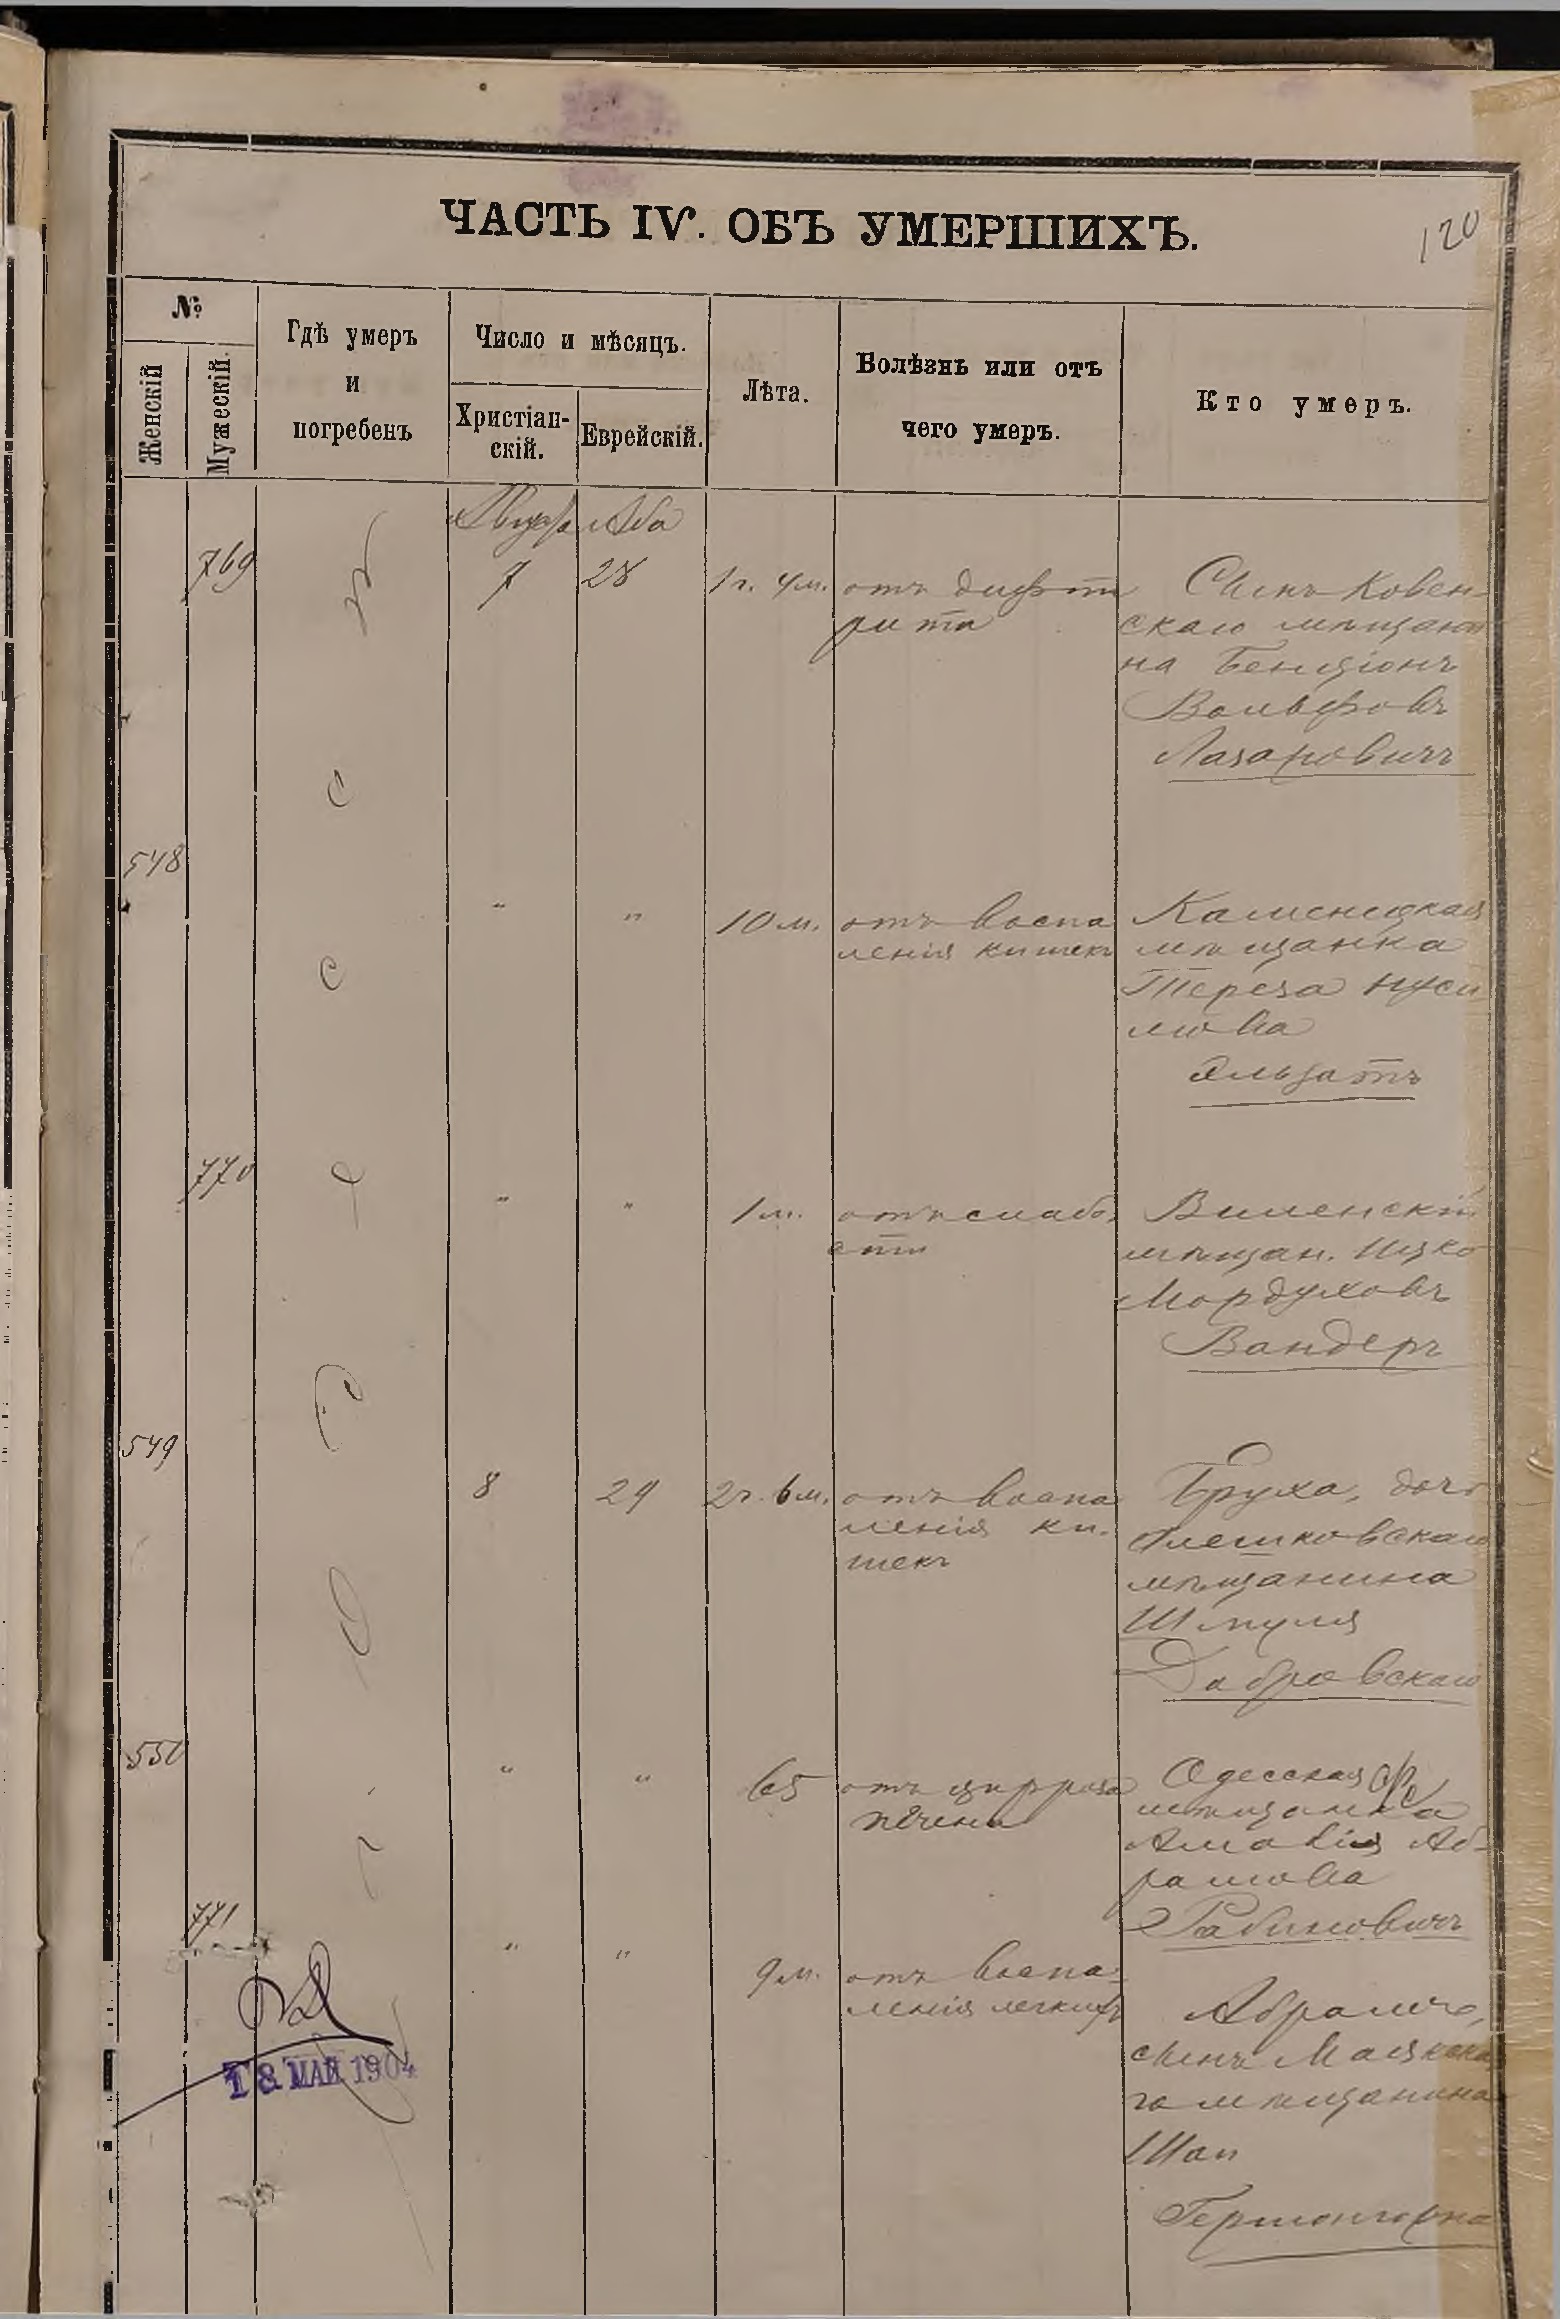 ЧАСТЬ IV. ОБЪ УМЕРШИХЪ.
120
№
Женскій
Мужескій.
Гдѣ умеръ
и
погребенъ
Число и мѣсяцъ.
Христіан-
скій.
Еврейскій.
Лѣта.
Болѣзнь или отъ
чего умеръ.
Кто умеръ.
Аба
769
7
28
1 г. 4 м.
отъ дифте
рита
Сынъ Ковен-
скаго мѣщани
на Бенціонъ
Вольфовъ
Лазаровичъ
548
"
"
10 м.
отъ воспа
ленія кишекъ
Каменецкая
мѣщанка
Тереза Нуси
мова
770
"
"
1 м.
отъ слабо
сти
Виленскій
мѣщан. Ицко
Мордуховъ
Вандеръ
549
8
29
2 г. 6 м.
отъ воспа
ленія ки-
шекъ
Бруха, дочь
Олешковскаго
мѣщанина
Шмуля
Добровскаго
550
"
"
65
отъ цирроза
печени
Одесская
мѣщанка
Аб-
рамова
Рабиновичъ
771
"
"
9 м.
отъ воспа-
ленія легкихъ
Абрамъ,
сынъ Маякска
го мѣщанина
18 МАЙ 1904